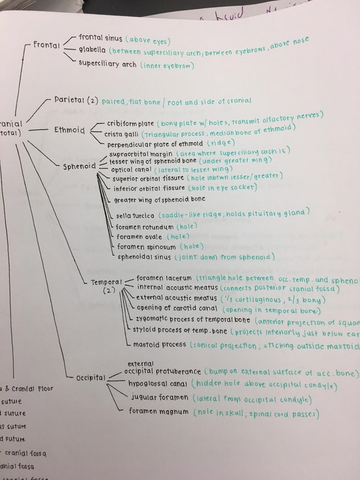 Frontal
frontal sinus (above eyes)
glabella (between superciliary arch, between eyebrows, above nose
superciliary arch (inner eyebrow)
Parietal (2) paired, flat bone / roof and side of cranial
Ethmoid
cribiform plate (bony plate w/ holes, transmit olfactory nerves)
crista galli (triangular process, median bone of ethmoid)
perpendicular plate of ethmoid (ridge)
Sphenoid
supraorbital margin (area where superciliary arch is)
lesser wing of sphenoid bone (under greater wing)
optical canal (lateral to lesser wing)
superior orbital fissure (hole between lesser/greater)
inferior orbital fissure (hole in eye socket)
greater wing of sphenoid bone
sella tucica (saddle-like ridge, holds pituitary gland)
foramen rotundum (hole)
foramen ovale (hole)
foramen spinosum (hole)
sphenoidal sinus (joint down from sphenoid)
Temporal
(2)
foramen lacerum (triangle hole between occ. temp. and spheno
internal acoustic meatus (connects posterior cranial fossa)
external acoustic meatus (1/3 cartilaginous, 2/3 bony)
opening of carotid canal (opening in temporal bone)
zygomatic process of temporal bone (anterior projection of squar
styloid process of temp. bone (projects inferiorly just below ear
mastoid process (conical projection, sticking outside mastoid
Occipital
external
occipital protuberance (bump on external surface of occ. bone)
hypoglossal canal (hidden hole above occipital condyle)
jugular foramen (lateral from occipital condyle)
foramen magnum (hole in skull, spinal cord passes)
& Cranial Floor
suture
suture
suture
suture
cranial fossa
cranial fossa